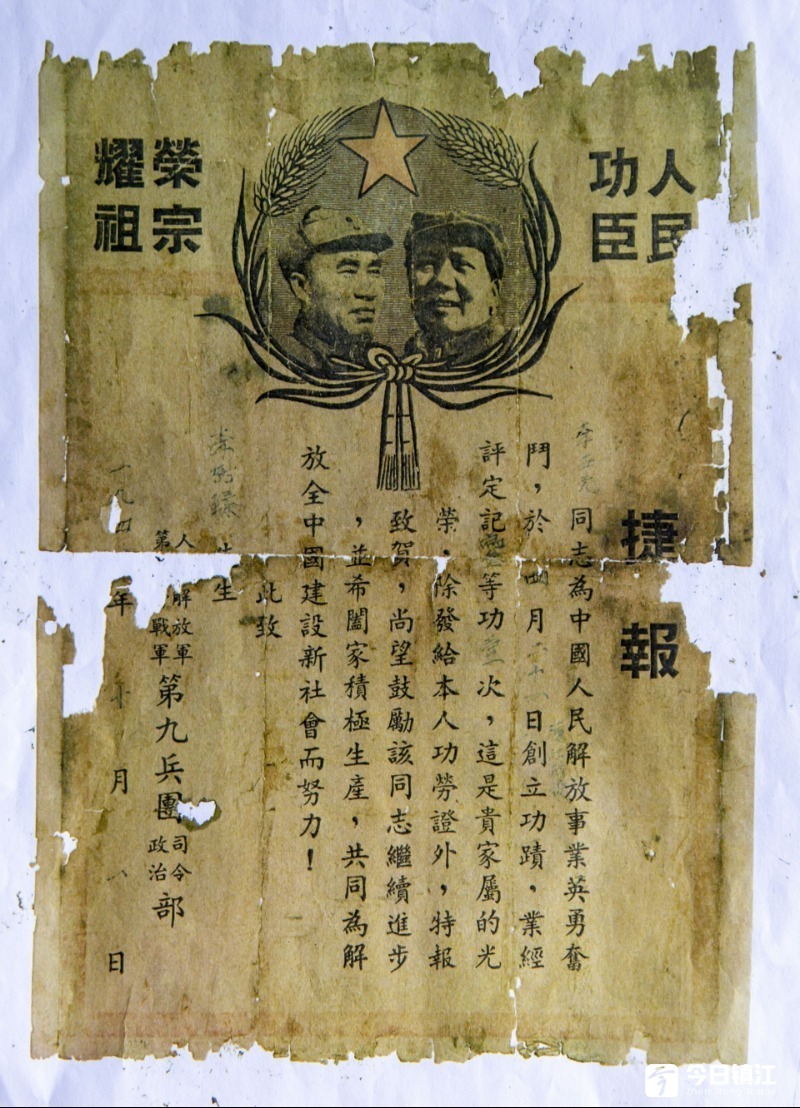 人民
功臣
榮宗
耀祖
捷報
同志為中國人民解放事業英勇奮
鬥，於四月 日創立功蹟，業經
評定記 等功 次，這是貴家屬的光
榮．除發給本人功勞證外，特報
致賀，尚望鼓勵該同志繼續進步
，並希闔家積極生產，共同為解
放全中國建設新社會而努力！
此致
人 解放軍
第 戰軍
第九兵團司令政治部
一九四 年 月八日
今日镇江